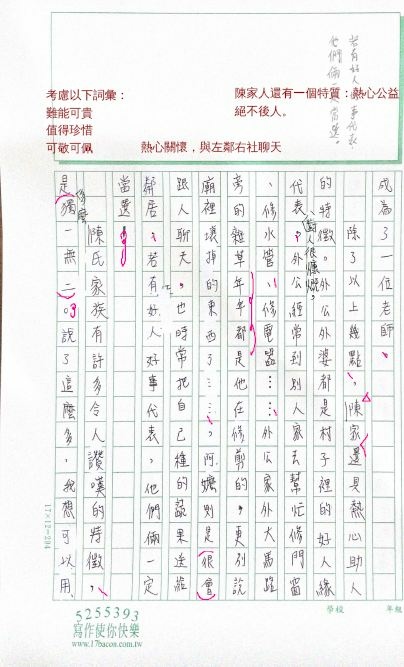 若有好人好事代表，
他們倆一定當選。
考慮以下詞彙：
難能可貴
值得珍惜
可敬可佩
陳家人還有一個特質：熱心公益
絕不後人。
熱心關懷，與左鄰右社聊天
成為了一位老師。
除了以上幾點，陳家還具熱心助人
的特徵。外公外婆都是村子裡的好人緣
代表，對人很慷慨。外公經常到別人家去幫忙修門窗
、修水管、修電路……外公家外大馬路
旁的雜草年年都是他在修剪的，更別說
廟裡壞掉的東西了……。阿嬤則是很會
跟人聊天，也時常把自己種的蔬果送給
鄰居，若有好人好事代表，他們倆一定
當選。
陳氏家族有許多令人讚嘆的特徵，
是獨一無二。說了這麼多，我想可以用
17×12=204
學校
年級
5255393
寫作使你快樂
www.17bacon.com.tw